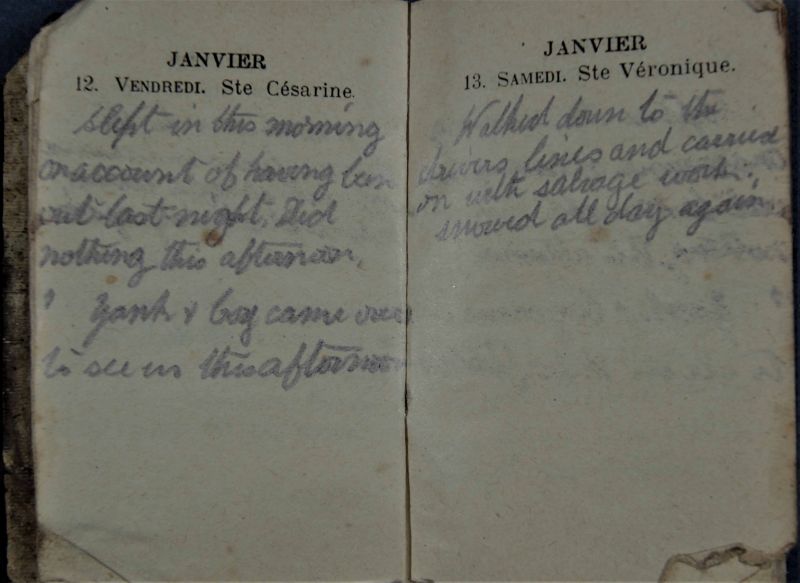 JANVIER
12. VENDREDI. Ste Césarine.
slept in this morning
on account of having been
out last night. Did
nothing this afternoon.
" Yank & Coy came over
to see us this afternoon
JANVIER
13. SAMEDI. Ste Véronique.
Walked down to the
drivers lines and carried
on with salvage work.
snowed all day again.